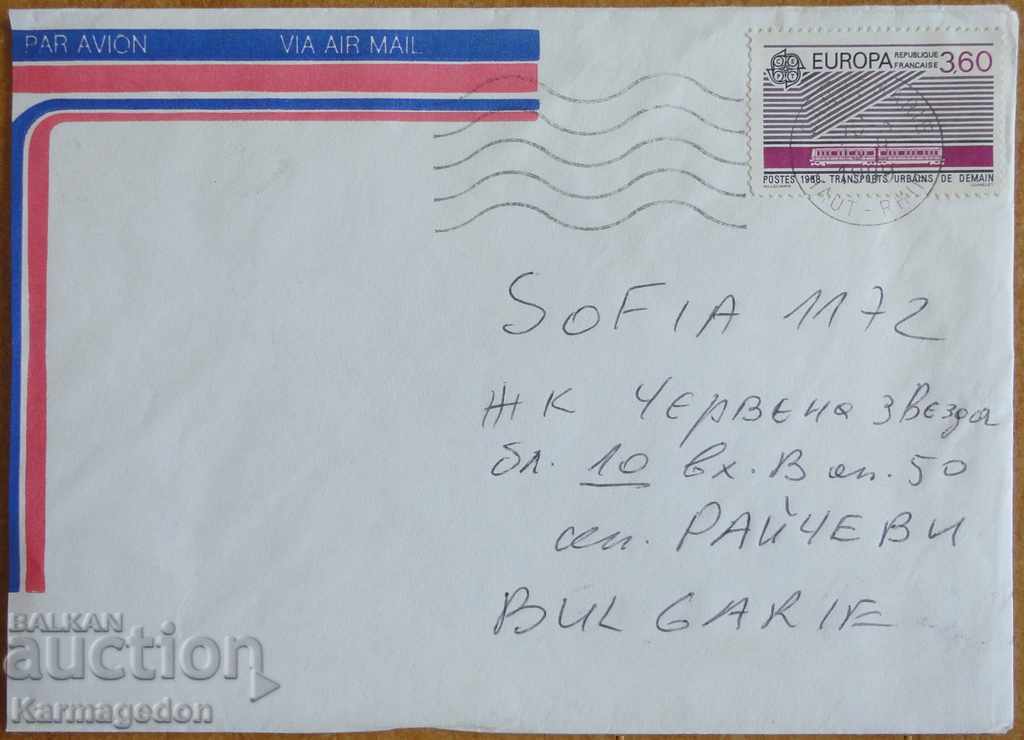 PAR AVION VIA AIR MAIL
EUROPA RÉPUBLIQUE FRANÇAISE 3,60
CEPT
POSTES 1988 TRANSPORTS URBAINS DE DEMAIN
HAUT-RHIN
SOFIA 1172
ЖК ЧЕРВЕНА ЗВЕЗДА
бл. 10 вх. В ап. 50
сем. РАЙЧЕВИ
BULGARIE
BALKAN
auction
Karmagedon